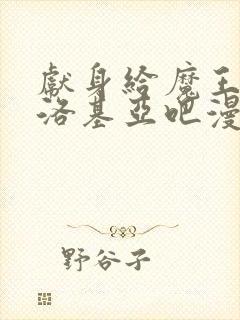 獻身給魔王
洛基亞吧漫
野谷子